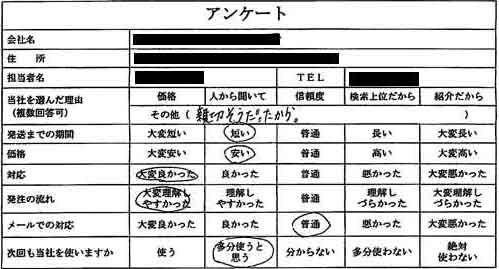 アンケート
会社名
住 所
担当者名 TEL
当社を選んだ理由 価格 人から聞いて 信頼度 検索上位だから 紹介だから
(複数回答可) その他 ( 親切そうだったから。 )
発送までの期間 大変短い 短い 普通 長い 大変長い
価格 大変安い 安い 普通 高い 大変高い
対応 大変良かった 良かった 普通 悪かった 大変悪かった
発注の流れ 大変理解しやすかった 理解しやすかった 普通 理解しづらかった 大変理解しづらかった
メールでの対応 大変良かった 良かった 普通 悪かった 大変悪かった
次回も当社を使いますか 使う 多分使うと思う 分からない 多分使わない 絶対使わない